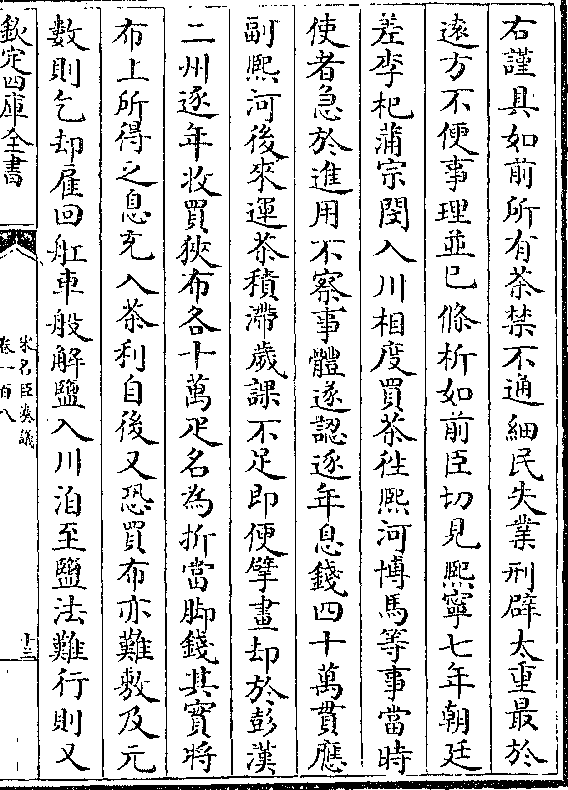 右謹具如前所有茶禁不通細民失業刑辟太重最於
遠方不便事理並已條析如前臣切見熙寧七年朝廷
差李杞蒲宗閔入川相度買茶往熙河博馬等事當時
使者急於進用不察事體遂認逐年息錢四十萬貫應
副熙河後來運茶積滯歲課不足即便擘畫却於彭漢
二州逐年收買狹布各十萬疋名為折當脚錢其實將
布上所得之息充入茶利自後又恐買布亦難敷及元
數則乞却雇回舡車般解鹽入川洎至鹽法難行則又
欽定四庫全書
宋名臣奏議
卷一百八
十三